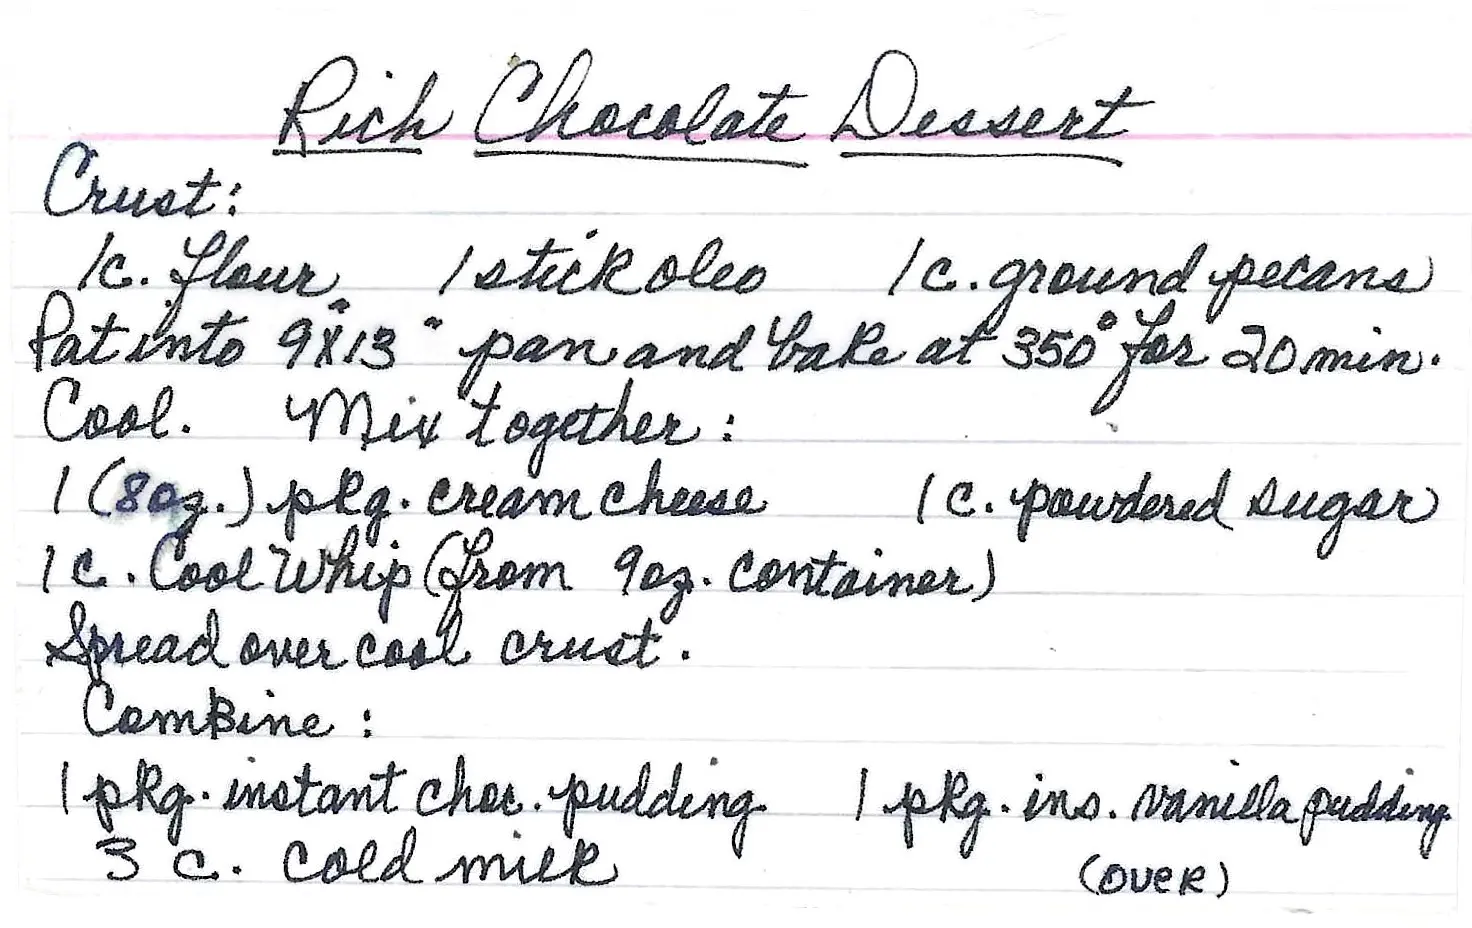 Rich Chocolate Dessert
Crust:
1c. flour 1 stick oleo 1c. ground pecans
Pat into 9"x13" pan and bake at 350° for 20 min.
Cool. Mix together:
1 (8oz.) pkg. cream cheese 1c. powdered sugar
1c. Cool Whip (from 9oz. container)
Spread over cool crust.
Combine:
1 pkg. instant choc. pudding 1 pkg. ins. vanilla pudding
3 c. cold milk (OVER)